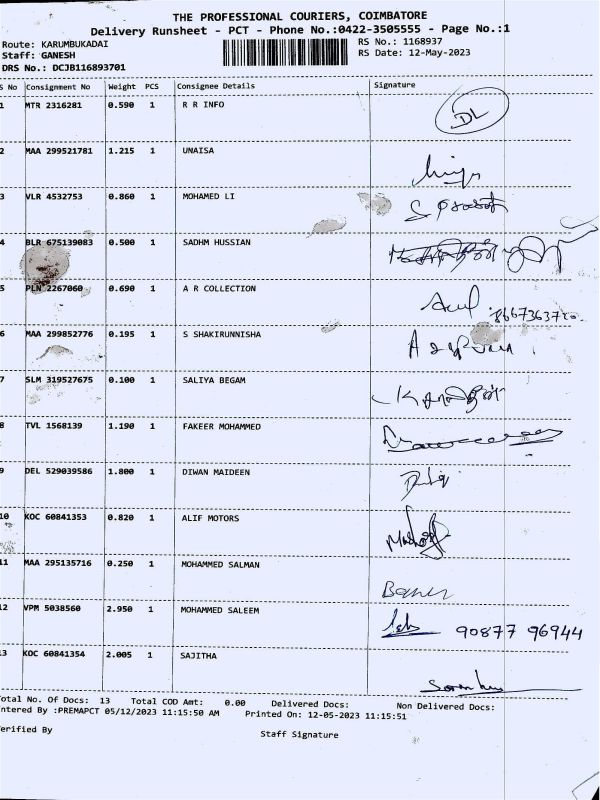 THE PROFESSIONAL COURIERS, COIMBATORE
Delivery Runsheet - PCT - Phone No.:0422-3505555 - Page No.:1
Route: KARUMBUKADAI RS No.: 1168937
Staff: GANESH RS Date: 12-May-2023
DRS No.: DCJB116893701
S No Consignment No Weight PCS Consignee Details Signature
1 MTR 2316281 0.590 1 R R INFO DL
2 MAA 299521781 1.215 1 UNAISA
3 VLR 4532753 0.860 1 MOHAMED LI
4 BLR 675139083 0.500 1 SADHM HUSSIAN
5 PLN 2267060 0.690 1 A R COLLECTION
6 MAA 299852776 0.195 1 S SHAKIRUNNISHA
7 SLM 319527675 0.100 1 SALIYA BEGAM
8 TVL 1568139 1.190 1 FAKEER MOHAMMED
9 DEL 529039586 1.800 1 DIWAN MAIDEEN
10 KOC 60841353 0.820 1 ALIF MOTORS
11 MAA 295135716 0.250 1 MOHAMMED SALMAN
12 VPM 5038560 2.950 1 MOHAMMED SALEEM 90877 96944
13 KOC 60841354 2.005 1 SAJITHA
Total No. Of Docs: 13 Total COD Amt: 0.00 Delivered Docs: Non Delivered Docs:
ntered By :PREMAPCT 05/12/2023 11:15:50 AM Printed On: 12-05-2023 11:15:51
erified By Staff Signature